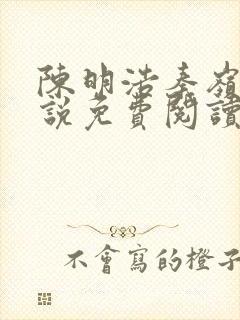 陳明浩秦嶺
說免費閱讀
不會寫的橙子